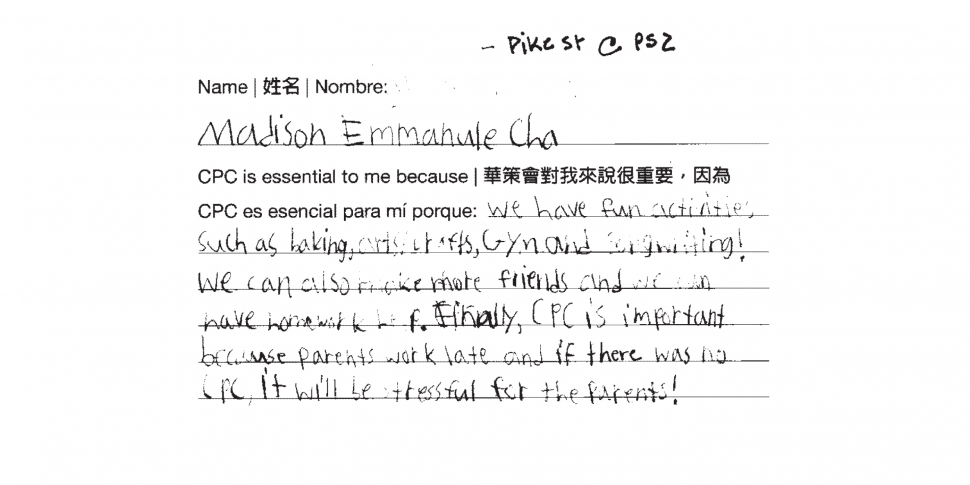 - Pike St @ PS2
Name | 姓名 | Nombre:
Madison Emmanule Cha
CPC is essential to me because | 華策會對我來說很重要，因為
CPC es esencial para mí porque: We have fun activities
such as baking, arts, crafts, Gyn and songwriting!
We can also make more friends and we can
have homework Finally, CPC is important
because parents work late and if there was no
CPC, it will be stressful for the parents!